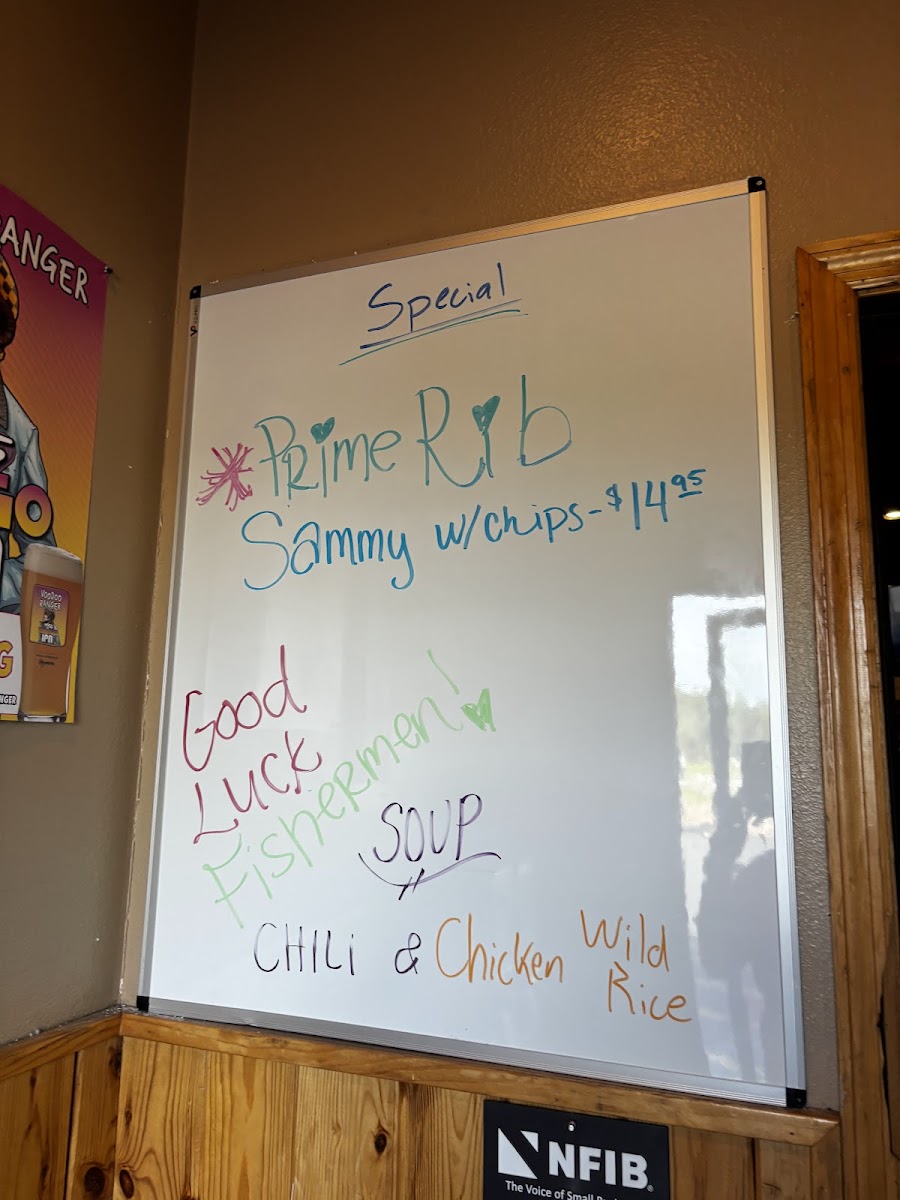 Special
*Prime Rib
Sammy w/chips-$14.95
Good
Luck
Fishermen!
SOUP
CHILi & Chicken Wild
Rice
ANGER
VOODOO
RANGER
IPA
G
NGER
NFIB
The Voice of Small